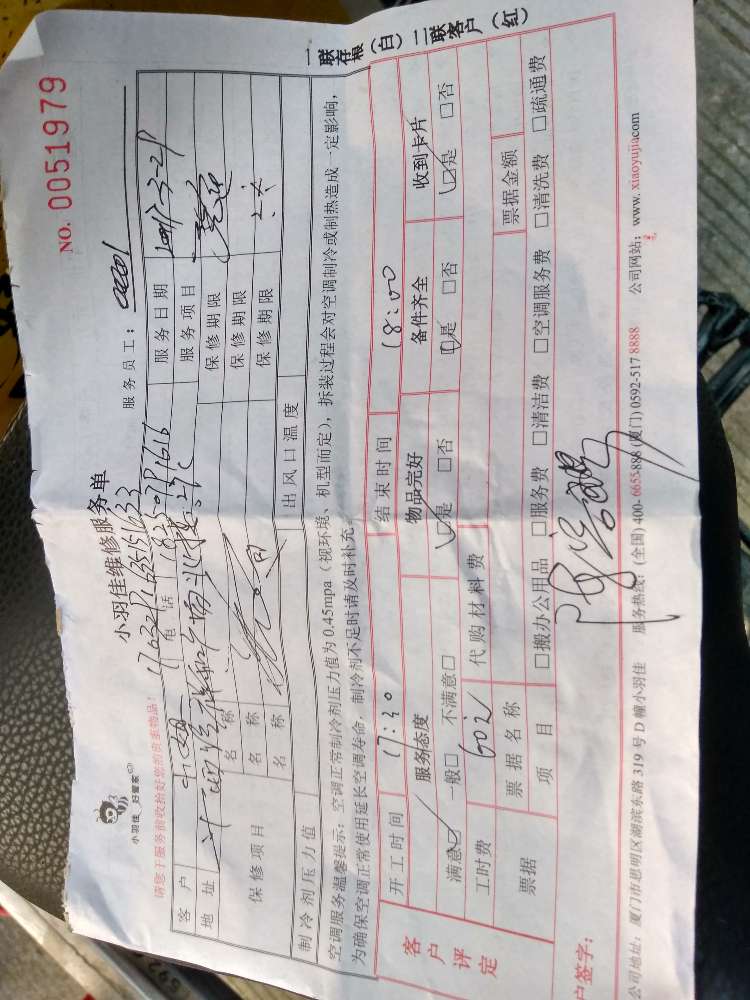 NO. 0051979
小羽佳 好管家
小羽佳维修服务单
请您于服务前收拾好您的贵重物品！
服务员工：
客户
电话
服务日期
地址
服务项目
保修项目
名称
保修期限
名称
保修期限
名称
保修期限
制冷剂压力值
出风口温度
空调服务温馨提示：空调正常制冷剂压力值为 0.45mpa（视环境、机型而定），拆装过程会对空调制冷或制热造成一定影响，
为确保空调正常使用延长空调寿命，制冷剂不足时请及时补充。
一联存根（白）二联客户（红）
客户评定
开工时间 17:30 结束时间 18:00
服务态度 物品完好 备件齐全 收到卡片
满意□ 一般□ 不满意□ □是 □否 □是 □否 □是 □否
工时费 60元 代购材料费
票据 票据名称 票据金额
项目 □搬办公用品 □服务费 □清洁费 □空调服务费 □清洗费 □疏通费
户签字：
公司地址：厦门市思明区湖滨东路 319 号 D 幢小羽佳 服务热线：(全国) 400-6655-888 (厦门) 0592-517 8888 公司网站：www.xiaoyujia.com